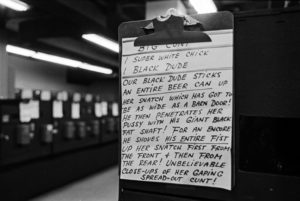 BIG CUNT
1 SUPER WHITE CHICK
1 BLACK DUDE
OUR BLACK DUDE STICKS
AN ENTIRE BEER CAN UP
HER SNATCH WHICH HAS GOT TO
BE AS WIDE AS A BARN DOOR!
HE THEN PENETRATES HER
PUSSY WITH HIS GIANT BLACK
FAT SHAFT! FOR AN ENCORE
HE SHOVES HIS ENTIRE FIST
UP HER SNATCH FIRST FROM
THE FRONT & THEN FROM
THE REAR! UNBELIEVABLE
CLOSE-UPS OF HER GAPING
SPREAD-OUT CUNT!